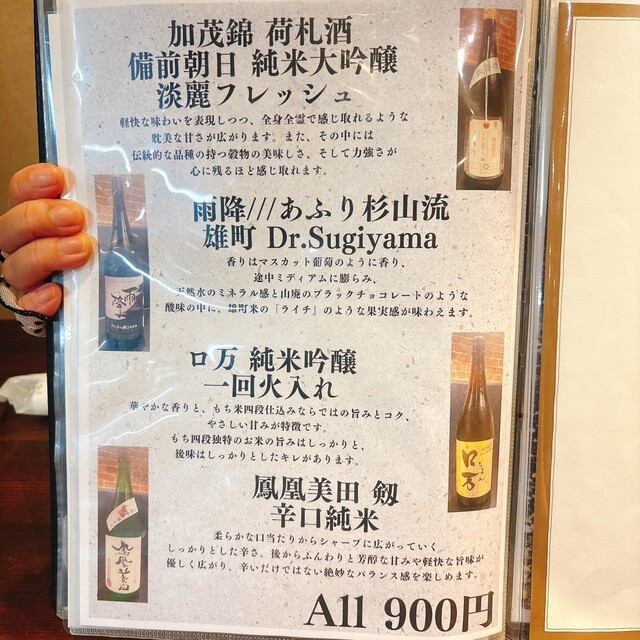 加茂錦 荷札酒
備前朝日 純米大吟醸
淡麗フレッシュ
軽快な味わいを表現しつつ、全身全霊で感じ取れるような
耽美な甘さが広がります。また、その中には
伝統的な品種の持つ穀物の美味しさ、そして力強さが
心に残るほど感じ取れます。
雨降///あふり杉山流
雄町 Dr.Sugiyama
香りはマスカット葡萄のように香り、
途中ミディアムに膨らみ、
天然水のミネラル感と山廃のブラックチョコレートのような
酸味の中に、雄町米の「ライチ」のような果実感が味わえます。
雨降
ロ万 純米吟醸
一回火入れ
華やかな香りと、もち米四段仕込みならではの旨みとコク、
やさしい甘みが特徴です。
もち四段独特のお米の旨みはしっかりと、
後味はしっかりとしたキレがあります。
ロ万
鳳凰美田 剱
辛口純米
柔らかな口当たりからシャープに広がっていく
しっかりとした辛さ。後からふんわりと芳醇な甘みや軽快な旨味が
優しく広がり、辛いだけではない絶妙なバランス感を楽しめます。
鳳凰美田
All 900円